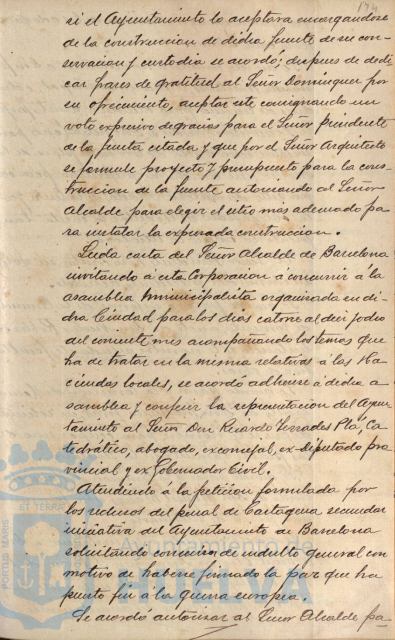 174
si el Ayuntamiento lo aceptara encargandose
de la construccion de dicha fuente de su con-
servacion y custodia se acordó; despues de dedi
car frases de gratitud al Señor Dominguez por
su ofrecimiento, aceptar este consignando un
voto expresivo de gracias para el Señor Presidente
de la Junta citada y que por el Señor Arquitecto
se formule proyecto y presupuesto para la cons-
truccion de la fuente autorizando al Señor
Alcalde para elegir el sitio más adecuado pa
ra instalar la expresada construccion.
Leida carta del Señor Alcalde de Barcelona
invitando á esta Corporacion á concurrir á la
asamblea Municipalista organizada en di-
cha Ciudad para los dias catorce al diez y ocho
del corriente mes acompañando los temas que
ha de tratar en la misma relativas á las Ha-
ciendas locales, se acordó adherirse á dicha a-
samblea y conferir la representacion del Ayun-
tamiento al Señor Don Ricardo Serrades Plá, Ca-
tedrático, abogado, exconcejal, ex-Diputado pro
vincial y ex Gobernador Civil.
Atendiendo á la peticion formulada por
los reclusos del penal de Cartagena secundar
iniciativa del Ayuntamiento de Barcelona
solicitando concesion de indulto general con
motivo de haberse firmado la paz que ha
puesto fin á la guerra europea.
Se acordó autorizar al Señor Alcalde pa-
ET TERRA
PORTUS MARIS
Ayuntamiento de